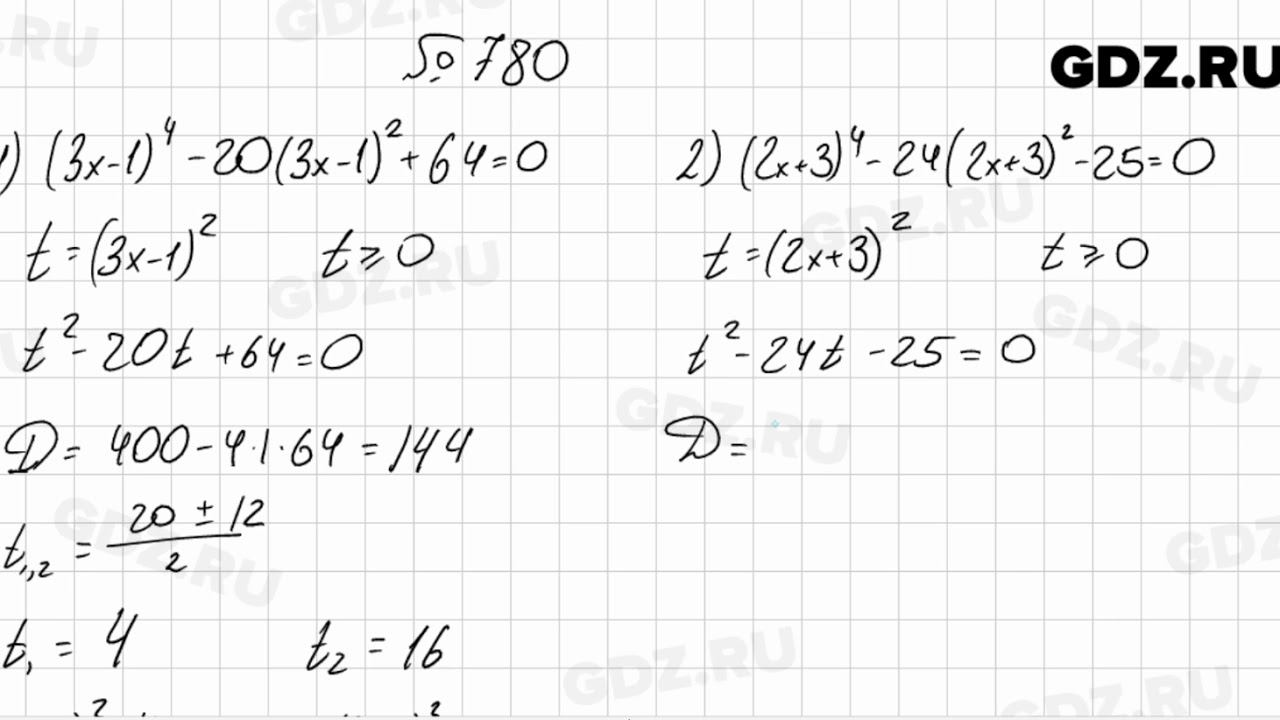 № 780
GDZ.RU
1) (3x-1)⁴ - 20(3x-1)² + 64 = 0
t = (3x-1)² t ⩾ 0
t² - 20t + 64 = 0
D = 400 - 4·1·64 = 144
t₁,₂ = (20 ± 12)/2
t₁ = 4 t₂ = 16
2) (2x+3)⁴ - 24(2x+3)² - 25 = 0
t = (2x+3)² t ⩾ 0
t² - 24t - 25 = 0
D =